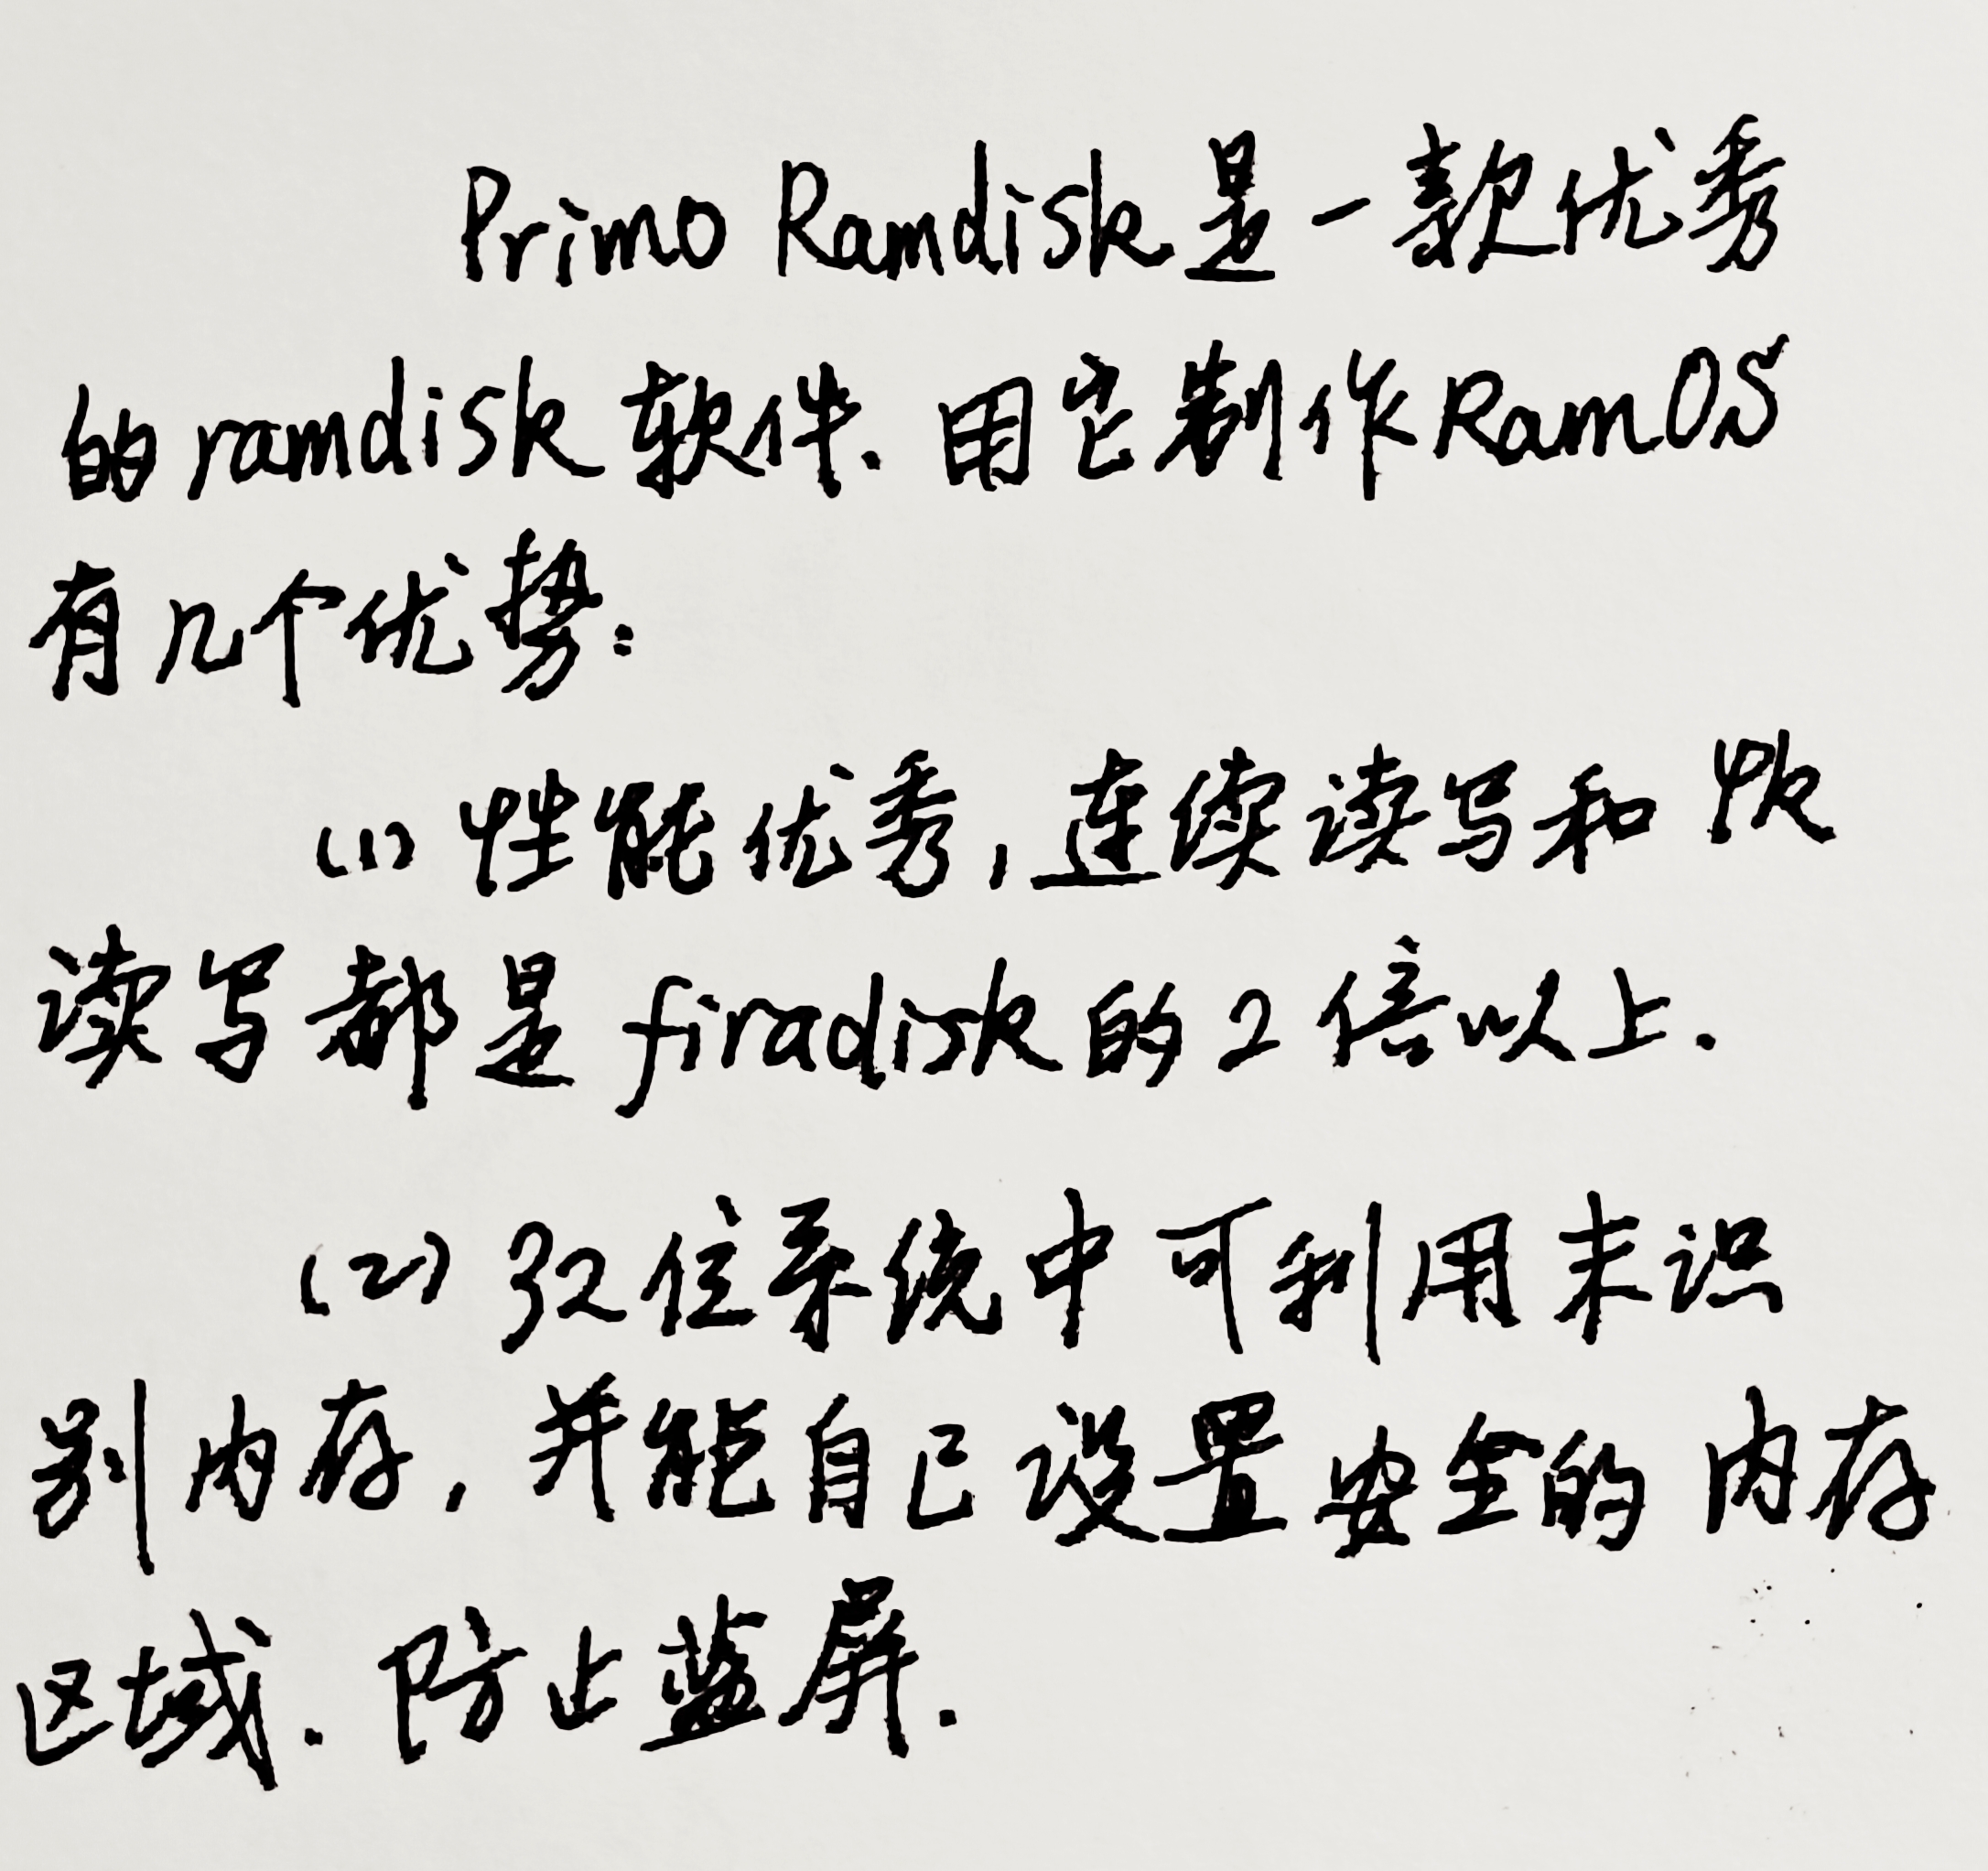 Primo Ramdisk是一款优秀
的ramdisk软件.用它制作RamOS
有几个优势:
(1)性能优秀,连续读写和4K
读写都是firadisk的2倍以上.
(2)32位系统中可利用未识
别内存,并能自己设置安全的内存
区域.防止蓝屏.